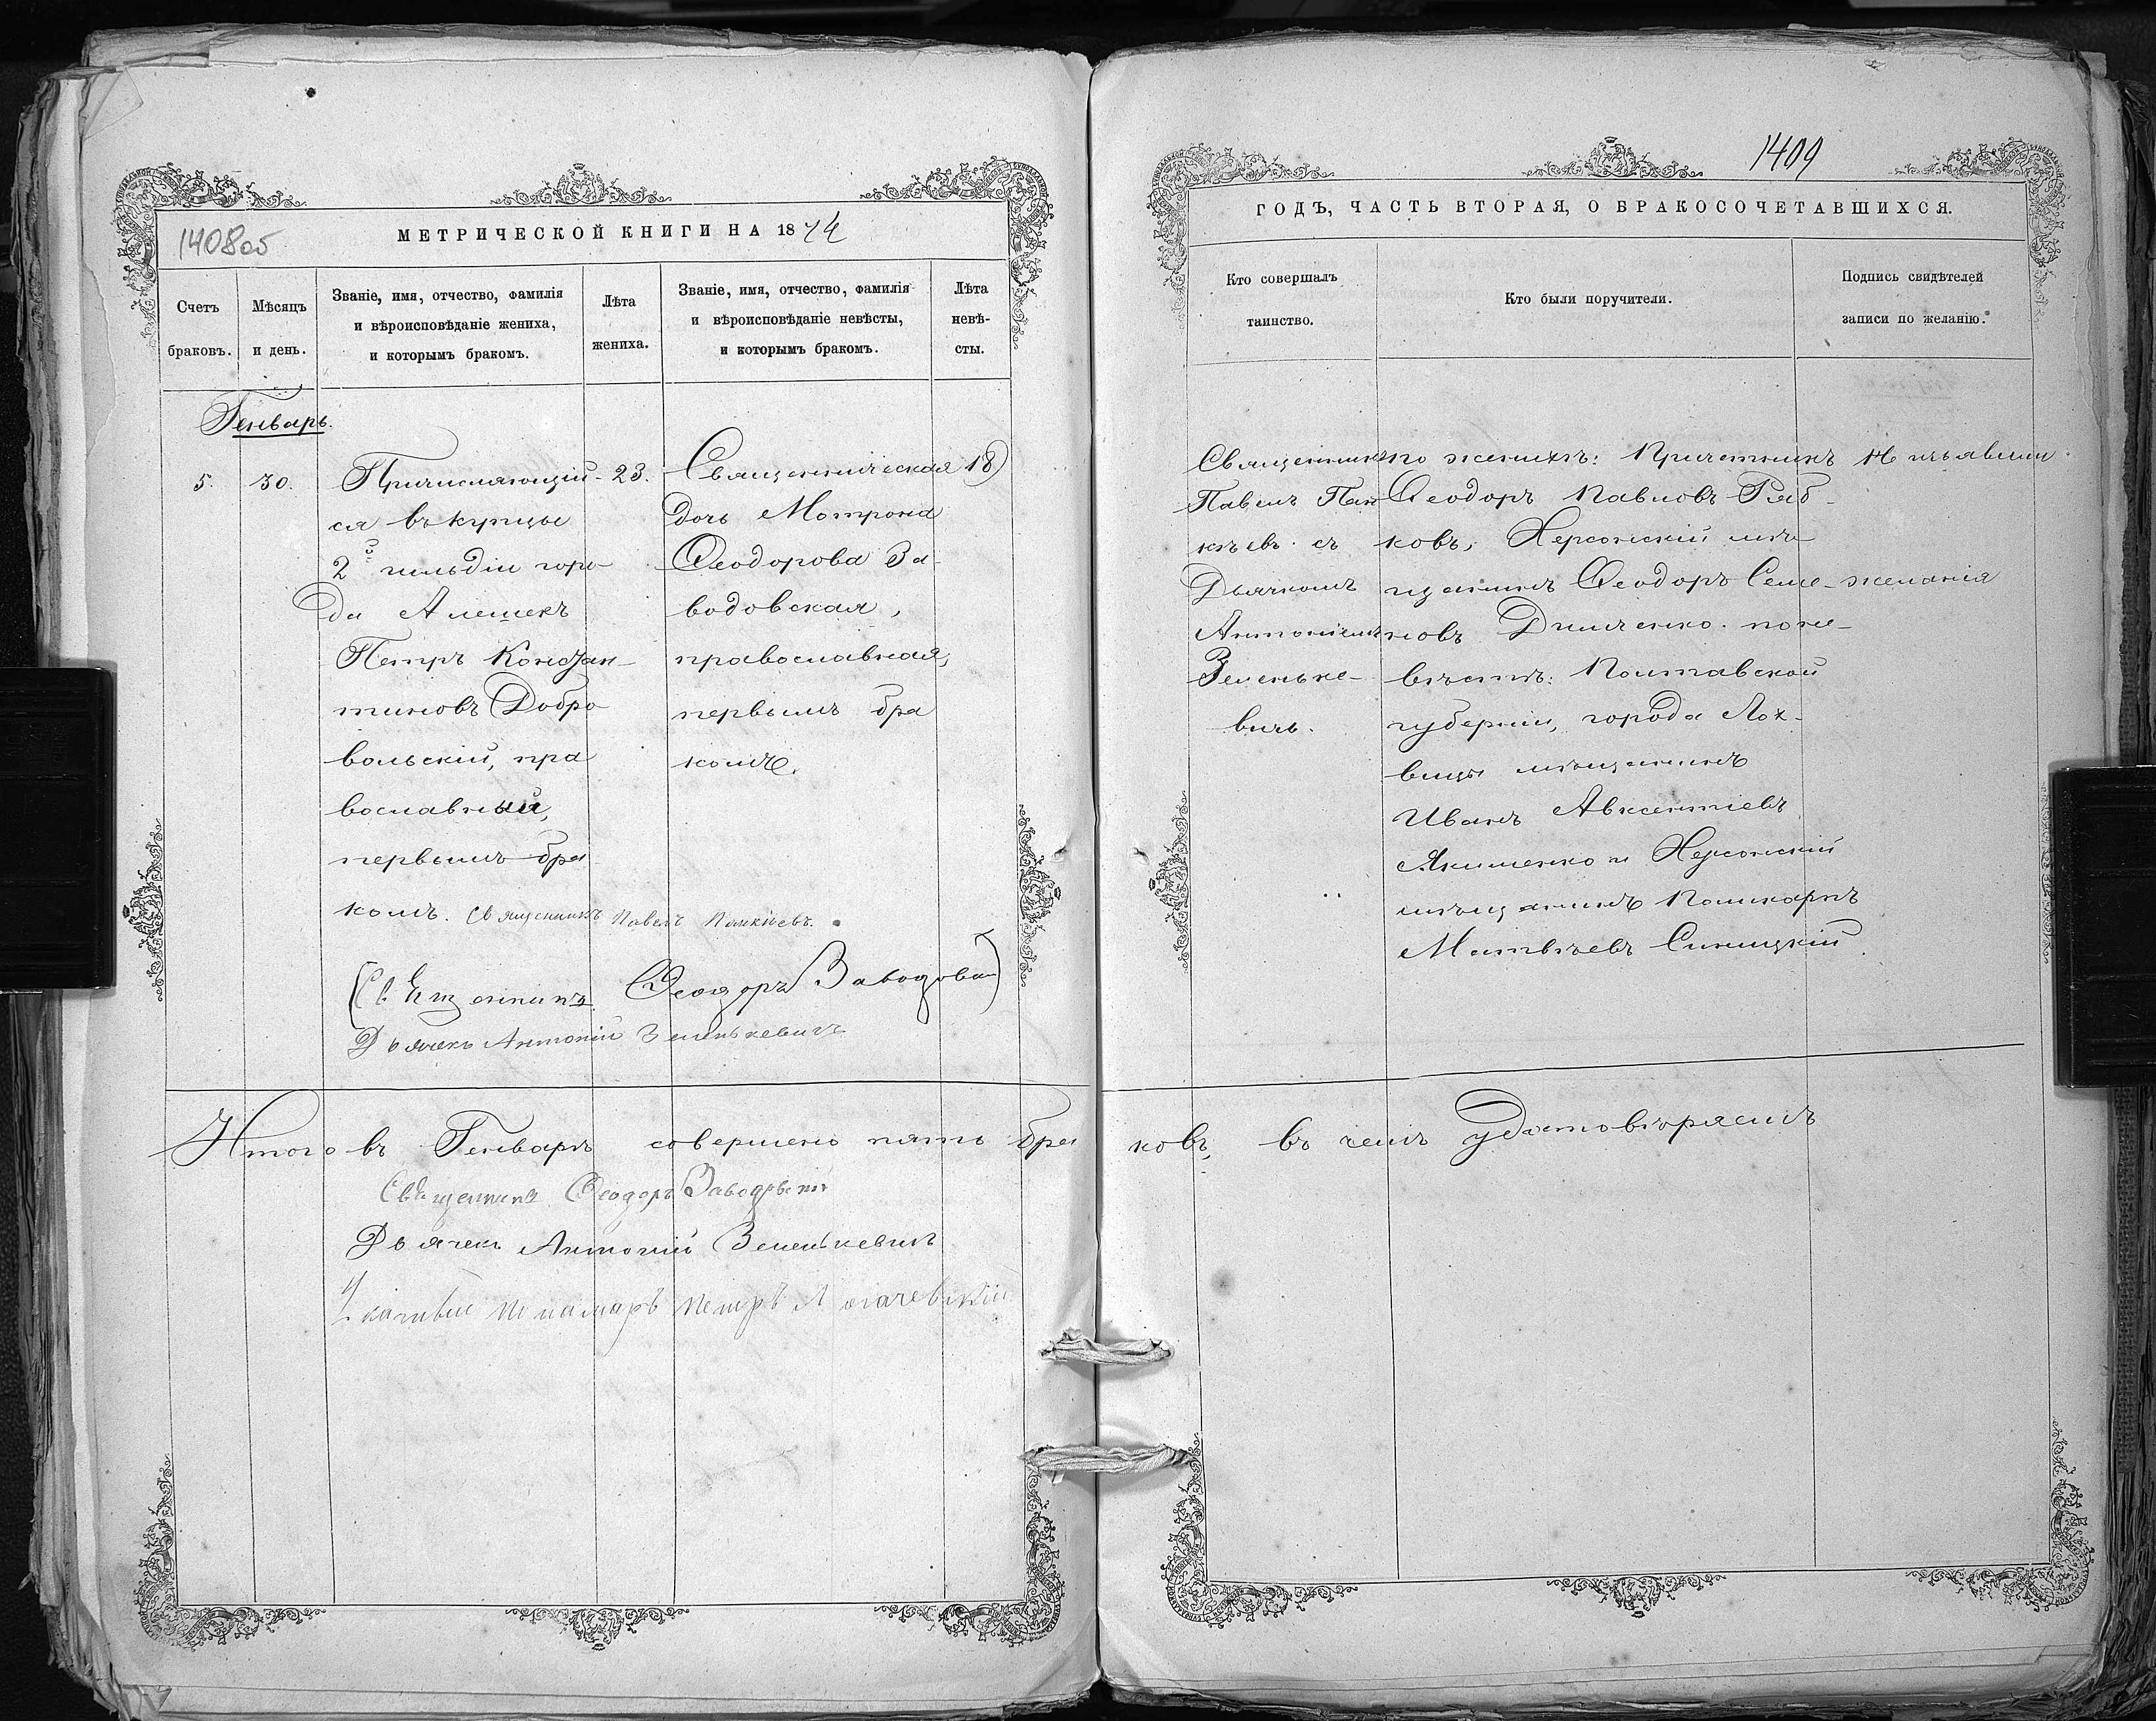 1408об
МЕТРИЧЕСКОЙ КНИГИ НА 1874
Счетъ браковъ.
Мѣсяцъ и день.
Званіе, имя, отчество, фамилія
и вѣроисповѣданіе жениха,
и которымъ бракомъ.
Лѣта
жениха.
Званіе, имя, отчество, фамилія
и вѣроисповѣданіе невѣсты,
и которымъ бракомъ.
Лѣта
невѣ-
сты.
Генварь.
5.
30.
Причисляющій-
ся въ купцы
2й гильдіи горо-
да Алешекъ
Петръ Констан-
тиновъ Добро
вольскій, пра
вославный,
первымъ бра
комъ.
23.
Священническая
дочь Мотрона
Ѳеодорова За-
водовская,
православная,
первымъ бра
комъ.
18
Священникъ Павелъ Панкѣевъ.
(Священникъ Ѳеодоръ Заводов)
Дьячекъ Антоній Зеленькевичъ
Итого въ Генварѣ совершено пять бра
Священникъ Ѳеодоръ Заводовскій
Дьячекъ Антоній Зеленькевичъ
Пономарь Петръ
1409
ГОДЪ, ЧАСТЬ ВТОРАЯ, О БРАКОСОЧЕТАВШИХСЯ.
Кто совершалъ
таинство.
Кто были поручители.
Подпись свидѣтелей
записи по желанію.
Священникъ
Павелъ Пан
кѣевъ съ
Дьячкомъ
Антоніемъ
Зеленьке-
вичъ.
по женихѣ: Причетникъ
Ѳеодоръ Павловъ Ряб-
ковъ, Херсонскій мѣ-
щанинъ Ѳеодоръ Семе-
новъ Димченко. по не-
вѣстѣ: Полтавской
губерніи, города Лох-
вицы мѣщанинъ
Иванъ Авксентіевъ
Якименко и Херсонскій
мѣщанинъ Поликарпъ
Матвѣевъ Синицкій.
Не изъявили
желанія
ковъ, въ чемъ удостовѣряемъ